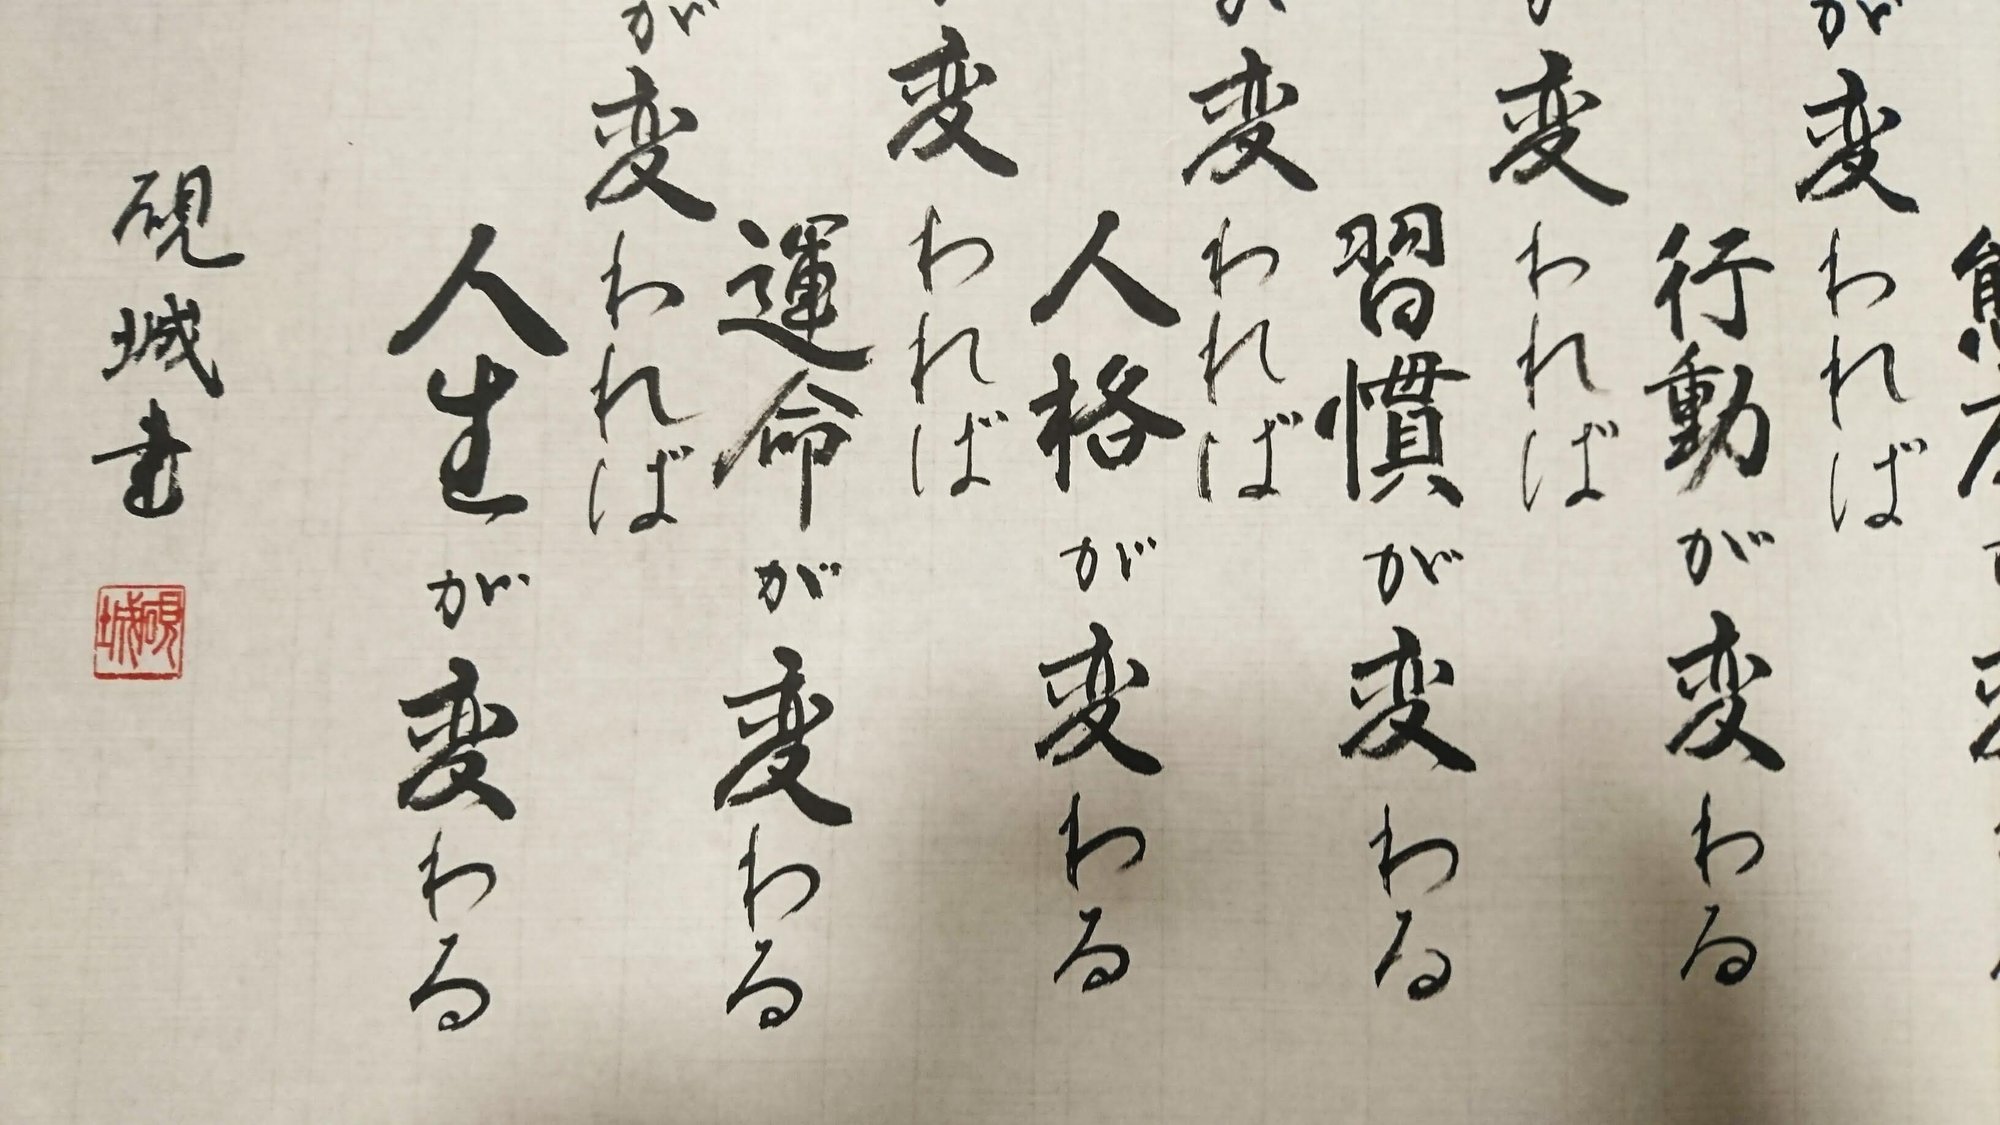 態度
が変われば
行動が変わる
変われば
習慣が変わる
変われば
人格が変わる
変われば
運命が変わる
が変われば
人生が変わる
硯城書
硯城